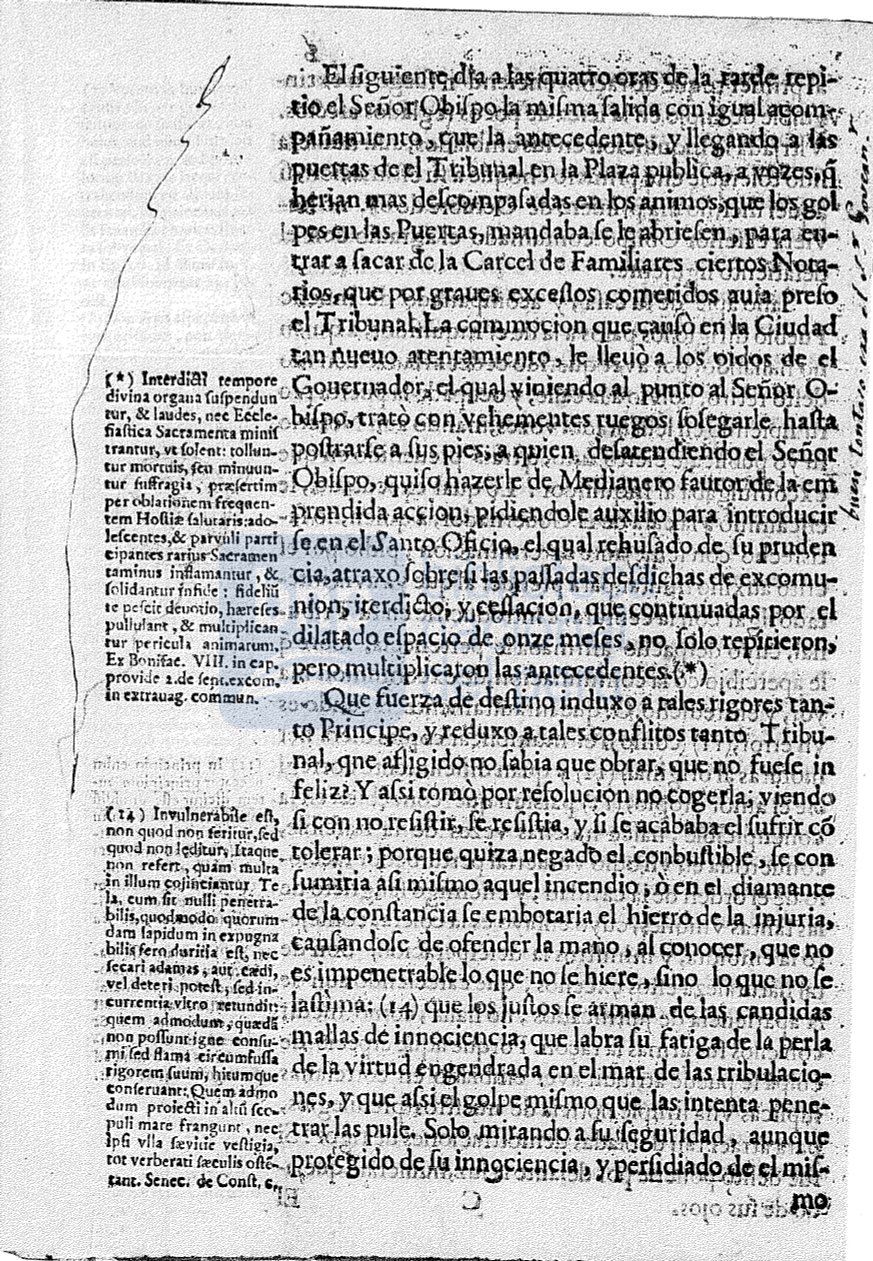 El siguiente dia a las quatro oras de la tarde repi-
tio el Señor Obispo la misma salida con igual acom-
pañamiento, que la antecedente, y llegando a las
puertas de el Tribunal en la Plaza publica, a vozes, q̃
herian mas descompasadas en los animos, que los gol
pes en las Puertas, mandaba se le abriesen, para en-
trar a sacar de la Carcel de Familiares ciertos Nota-
rios, que por graues excessos cometidos auia preso
el Tribunal. La commocion que causò en la Ciudad
tan nueuo atentamiento, le lleuò a los oidos de el
Gouernador, el qual viniendo al punto al Señor O-
bispo, tratò con vehementes ruegos sosegarle hasta
postrarse a sus pies; a quien desatendiendo el Señor
Obispo, quiso hazerle de Medianero fautor de la em
prendida accion, pidiendole auxilio para introducir
se en el Santo Oficio, el qual rehusado de su pruden
cia, atraxo sobre si las passadas desdichas de excomu-
nion, iterdicto, y cessacion, que continuadas por el
dilatado espacio de onze meses, no solo repitieron,
pero multiplicaron las antecedentes. (*)
Que fuerza de destino induxo a tales rigores tan-
to Principe, y reduxo a tales conflitos tanto Tribu-
nal, qne afligido no sabia que obrar, que no fuese in
feliz? Y assi tomò por resolucion no cogerla; viendo
si con no resistir, se resistia, y si se acababa el sufrir cõ
tolerar; porque quiza negado el conbustible, se con
sumiria asi mismo aquel incendio, ò en el diamante
de la constancia se embotaria el hierro de la injuria,
cansandose de ofender la mano, al conocer, que no
es impenetrable lo que no se hiere, sino lo que no se
lastima: (14) que los justos se arman de las candidas
mallas de innociencia, que labra su fatiga de la perla
de la virtud engendrada en el mar de las tribulacio-
nes, y que assi el golpe mismo que las intenta pene-
trar las pule. Solo mirando a su seguridad, aunque
protegido de su innociencia, y persidiado de el mis-
mo
(*) Interdicti tempore
divina organa suspendun
tur, & laudes, nec Eccle-
siastica Sacramenta minis
trantur, vt solent: tollun-
tur mortuis, seu minuun-
tur suffragia, præsertim
per oblationem frequen-
tem Hostiæ salutaris: ado-
lescentes, & parvuli parti
cipantes rarius Sacramen
taminus inflamantur, &
solidantur in fide: fideliũ
te pescit deuotio, hæreses
pullulant, & multiplican
tur pericula animarum.
Ex Bonifac. VIII. in cap.
provide 2. de sent. excom.
in extrauag. commun.
(14) Invulnerabile est,
non quod non feritur, sed
quod non lęditur. Itaque
non refert, quàm multa
in illum cojinciantur Te
la, cum sit nulli penetra-
bilis, quodmodo quorum-
dam lapidum in expugna
bilis fero duritia est, nec
secari adamas, aut cædi,
vel deteri potest, sed in-
currentia vltro retundit:
quem admodum, quædã
non possunt igne consu-
mi sed flama circumfusa
rigorem suum, hitumque
conseruant: Quem admo
dum proiecti in altũ sco-
puli mare frangunt, nec
ipsi vlla sævitie vestigia,
tot verberati sæculis ostẽ-
tant. Senec. de Const. c.